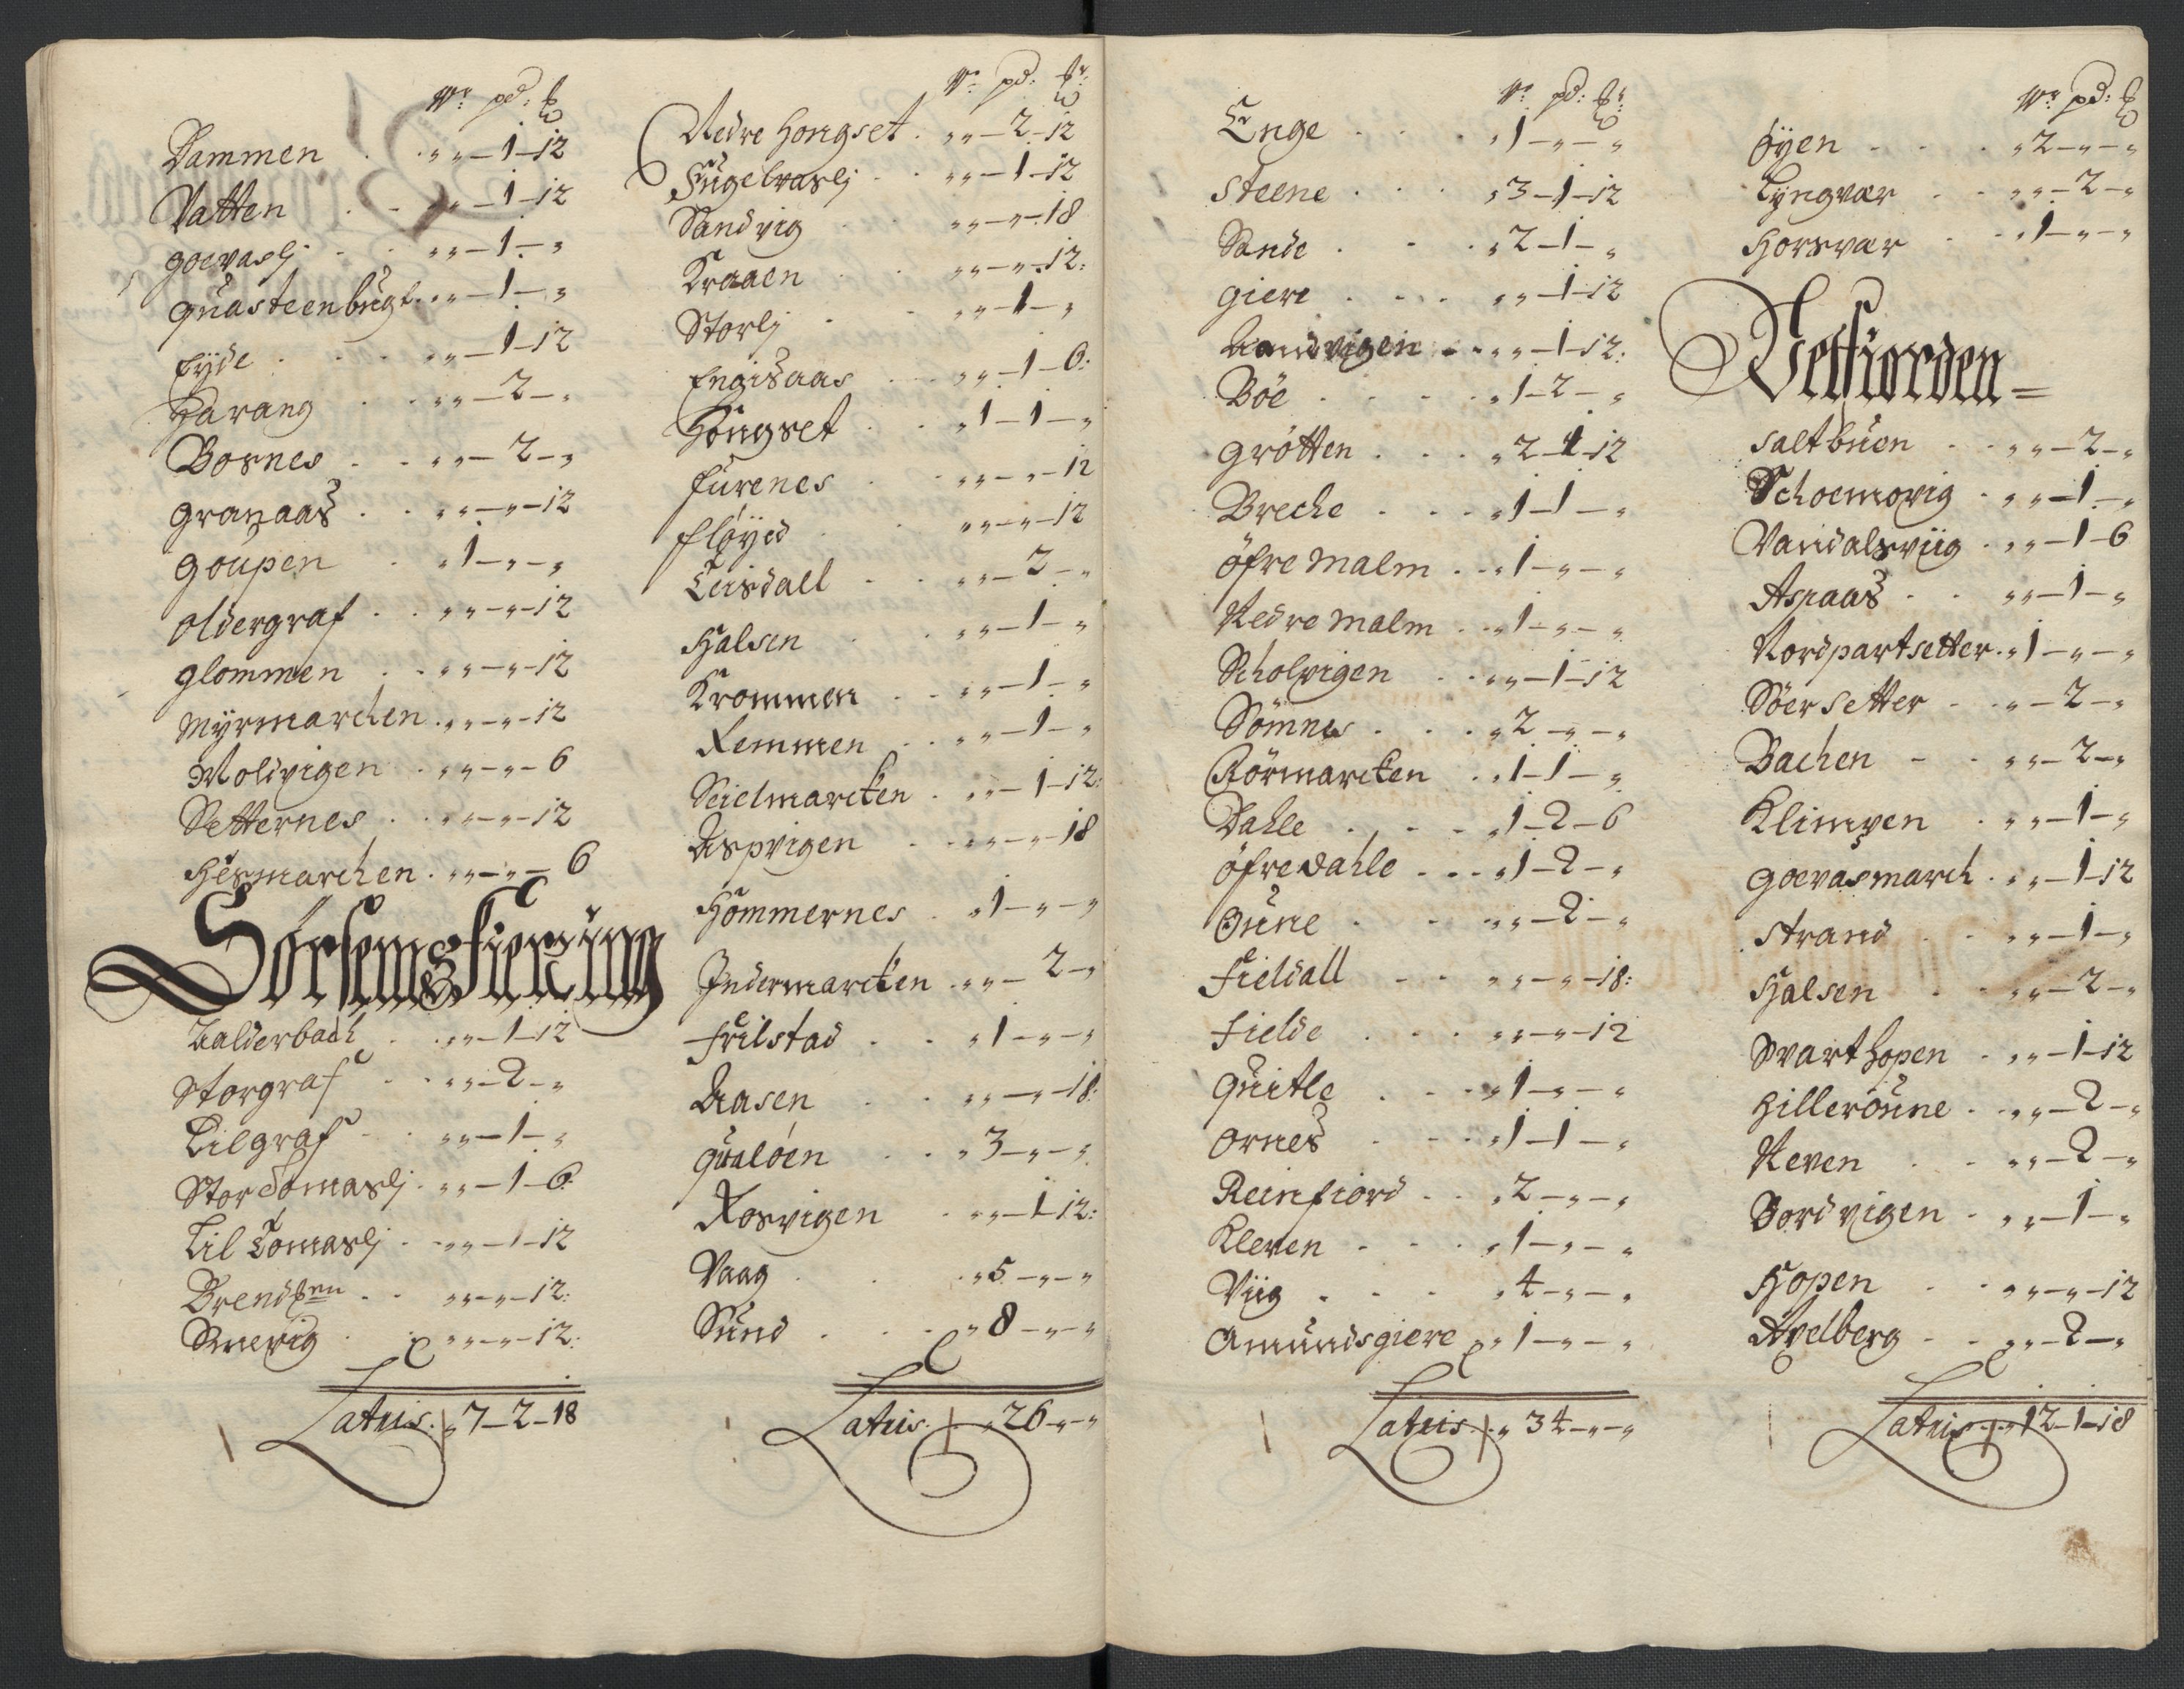 Wr: pd: lb
Dammen . . „ „ – 1 – 12
Vatten . . „ „ – 1 – 12
goevaslj . . „ „ – 1 – „
quasteenbugt . „ „ – 1 – „
Eÿde . . . „ „ – 1 – 12
Harang . . „ „ – 2 – „
Bosnes . . „ „ – 2 – „
granaas . . „ „ – „ – 12
goupen . „ 1 – „ – „
oldergraf . . „ „ – „ – 12
glommen . . „ „ – „ – 12
Mÿrmarchen . „ „ – „ – 12
Moldvigen . „ „ – „ – 6
Setternes . . „ „ – „ – 12
Hesmarchen . „ „ – „ – 6
Sörsembsfierding
Aalderbach . . „ „ – 1 – 12
Storgraf . . „ „ – 2 – „
Lilgraf . . „ „ – 1 – „
Stor Tomaslj . „ „ – 1 – 6:
Lil Tomaslj . „ „ – 1 – 12
Brendxen . . „ „ – „ – 12:
Smevig . . „ „ – „ – 12:
Latus. „ 7 – 2 – 18
Wr: pd: lb:
Nedre Hongset . „ „ – 2 – 12
Fugelvaslj . . „ „ – 1 – 12
Sandvig . „ „ – „ – 18
Kraaen . . „ „ – „ – 12:
Storlj . . „ „ – 1 – „
Engisaas . . „ „ – 1 – 6:
Hongset . . „ 1 – 1 – „
furenes . . „ „ – „ – 12
fløyed . . „ „ – „ – 12
Leisdall . . „ „ – 2 – „
Halsen . . „ „ – 1 – „
Krommen . . „ „ – 1 – „
Remmen . . „ „ – 1 – „
Seielmarcken . „ „ – 1 – 12:
Aspvigen . . „ „ – „ – 18
Hommernes . „ 1 – „ – „
Indermarcken . „ „ – 2 – „
Frelstad . . „ 1 – „ – „
Aasen . . „ „ – „ – 18:
qualöen . . „ 3 – „ – „
Rosvigen . „ „ – 1 – 12:
Vaag . . „ 5 – „ – „
Sund . . „ 8 – „ – „
Latus. „ 26 – „ – „
Wr: pd: lb:
Enge . . . „ 1 – „ – „
Steene . . . „ 3 – 1 – 12
Sande . . . „ 2 – 1 – „
giere . . . „ „ – 1 – 12
Aandvigen . . „ „ – 1 – 12:
Böe . . . . „ 1 – 2 – „
grötten . . . „ 2 – 1 – 12
Breche . . . „ 1 – 1 – „
öfre malm . . „ 1 – „ – „
Nedre malm . . „ 1 – „ – „
Scholvigen . . „ „ – 1 – 12
Sömnes . . . „ 2 – „ – „
Rörmarcken . „ 1 – 1 – „
Dahle . . . „ 1 – 2 – 6
öfredahle . . . „ 1 – 2 – „
Oune . . . „ „ – 2 – „
Fieldall . . „ „ – „ – 18:
Fielde . . . „ „ – „ – 12
quitle . . . „ 1 – „ – „
ornes . . . „ 1 – 1 – „
Reinfiord . . „ 2 – „ – „
Kleven . . . „ 1 – „ – „
Viig . . . „ 4 – „ – „
Amundsgiere „ 1 – „ – „
Latus. „ 34 – „ – „
Wr: pd: lb
öÿen . . . „ 2 – „ – „
Lyngvær . . „ „ – 2 – „
Horsvær . . „ 1 – „ – „
Velfiorden =
Saltbuen . . „ „ – 2 – „
Schoemovig . „ „ – 1 – „
Vandalsviig . „ „ – 1 – 6
Aspaas . . „ „ – 1 – „
Nordpartsetter . „ 1 – „ – „
Söersetter . „ „ – 2 – „
Bachen . . „ „ – 2 – „
Klimpen . „ „ – 1 – „
goevasmarch . „ „ – 1 – 12
Strand . . „ „ – 1 – „
Halsen . . „ „ – 2 – „
Svarthopen . „ „ – 1 – 12
Hilleroune . „ „ – 2 – „
Neven . . „ „ – 2 – „
Bordvigen . „ „ – 1 – „
Hopen . . „ „ – „ – 12
Avelberg . . „ „ – 2 – „
Latus . „ 12 – 1 – 18